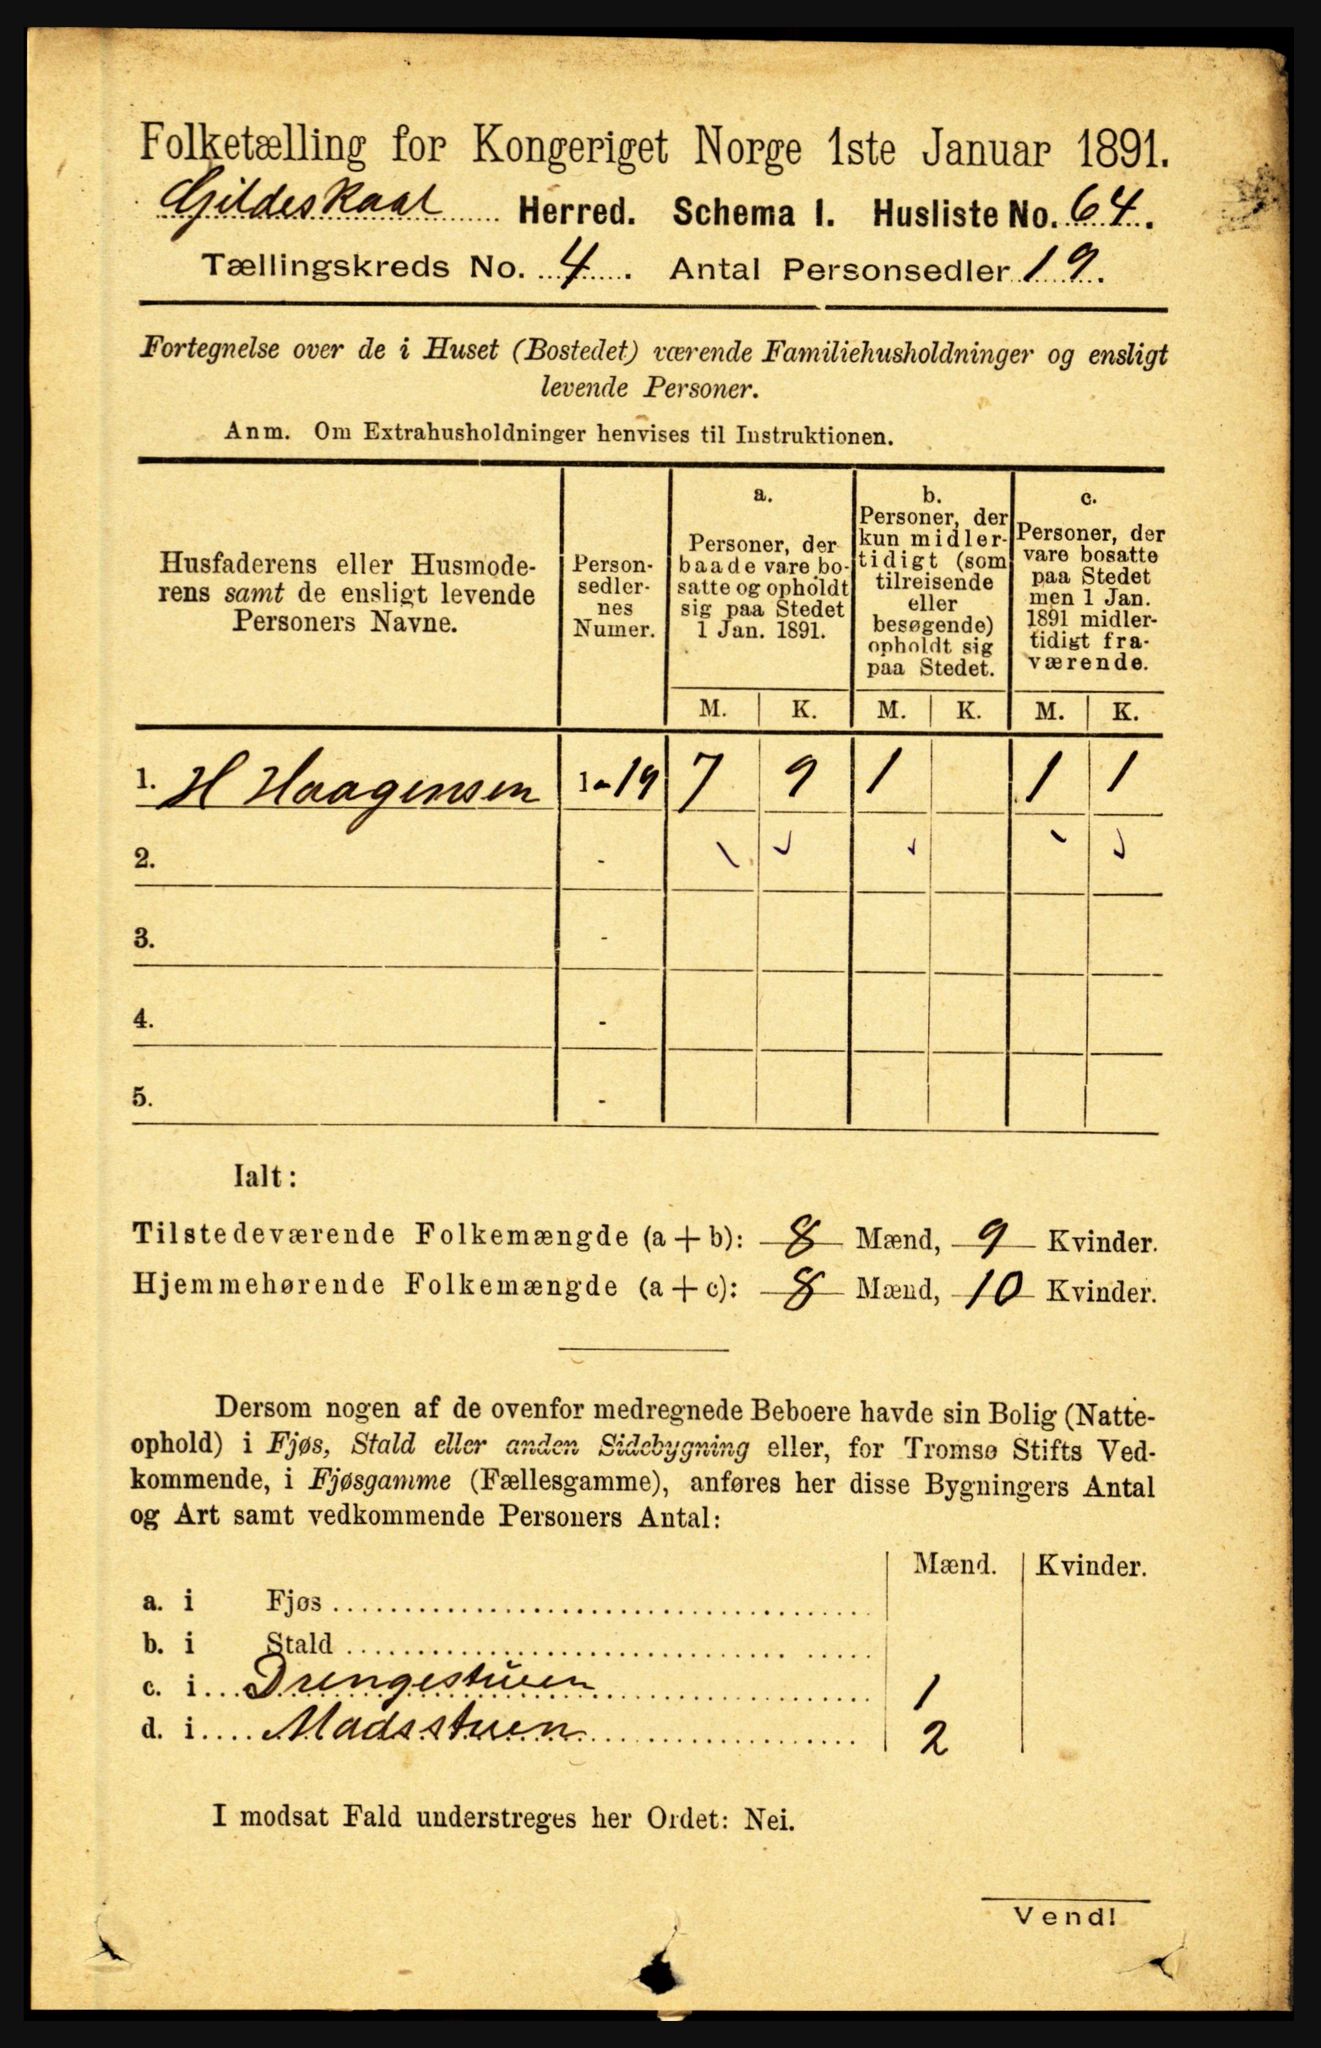 Folketælling for Kongeriget Norge 1ste Januar 1891.
Gildeskaal Herred. Schema I. Husliste No. 64.
Tællingskreds No. 4. Antal Personsedler 19.
Fortegnelse over de i Huset (Bostedet) værende Familiehusholdninger og ensligt
levende Personer.
Anm. Om Extrahusholdninger henvises til Instruktionen.
Husfaderens eller Husmode-
rens samt de ensligt levende
Personers Navne.
Person-
sedler-
nes
Numer.
a.
Personer, der
baade vare bo-
satte og opholdt
sig paa Stedet
1 Jan. 1891.
b.
Personer, der
kun midler-
tidigt (som
tilreisende
eller
besøgende)
opholdt sig
paa Stedet.
c.
Personer, der
vare bosatte
paa Stedet
men 1 Jan.
1891 midler-
tidigt fra-
værende.
M. K. M. K. M. K.
1. H Haagensen 1-19 7 9 1 1 1
2. -
3. -
4. -
5. -
Ialt:
Tilstedeværende Folkemængde (a + b): 8 Mænd, 9 Kvinder.
Hjemmehørende Folkemængde (a + c): 8 Mænd, 10 Kvinder.
Dersom nogen af de ovenfor medregnede Beboere havde sin Bolig (Natte-
ophold) i Fjøs, Stald eller anden Sidebygning eller, for Tromsø Stifts Ved-
kommende, i Fjøsgamme (Fællesgamme), anføres her disse Bygningers Antal
og Art samt vedkommende Personers Antal:
Mænd. Kvinder.
a. i Fjøs
b. i Stald
c. i Drengestuen 1
d. i Madsstuen 2
I modsat Fald understreges her Ordet: Nei.
Vend!